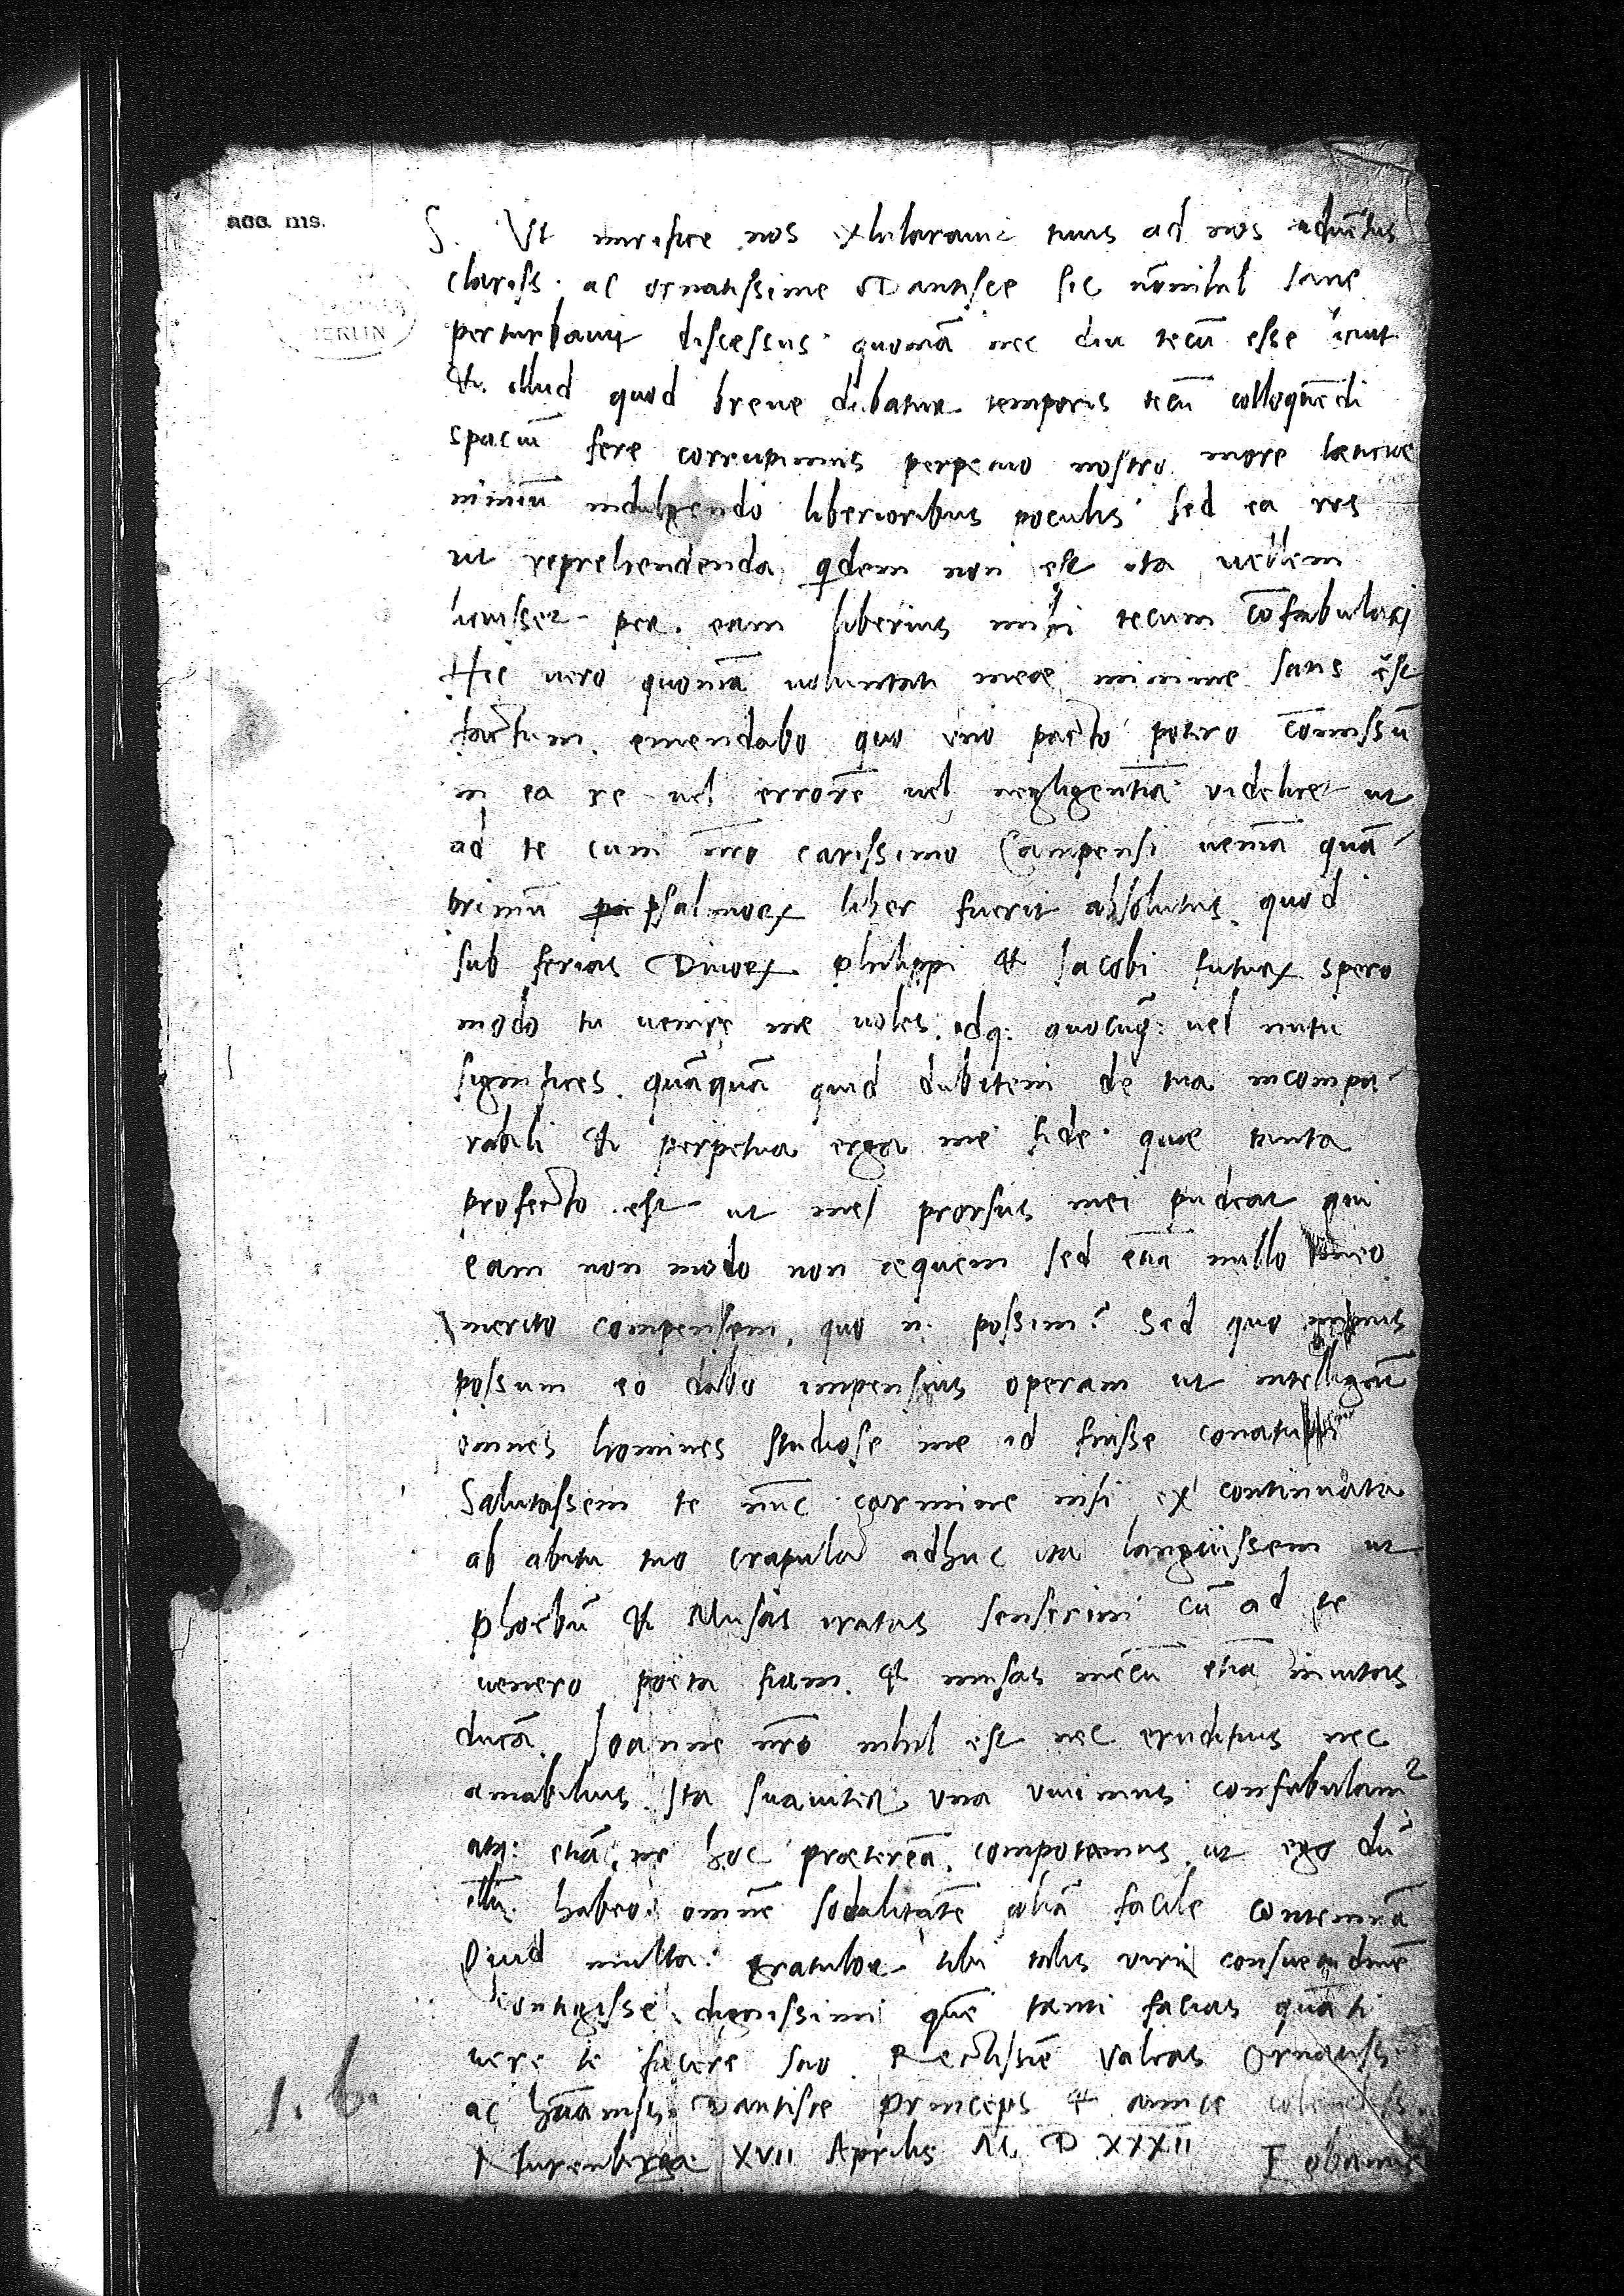 acc. ms.
BERLIN
S. Ut mirifice nos exhilaravit tuus ad nos advẽtus
clariss. ac ornatissime Dantisce sic nõnihil sane
perturbavit discessus quoniã nec diu tecũ esse licuit
& illud quod breve dabatur temporis tecũ colloquẽdi
spaciũ fere corrupimus perpetuo nostro more
nimiũ indulgendo liberioribus poculis sed ea res
ut reprehendenda qdem non est ita vellem
licuisset per eam liberius mihi tecum cõfabulari
Hic vero quoniã voluntati meae minime satis est
factum. emendabo quo uno pacto potero cõmissũ
in ea re vel errorẽ vel negligentiã videlicet ut
ad te cum nr̃o carissimo Campensi veniã quã-
primũ psalmoꝝ liber fuerit absolutus. quod
sub ferias Divoꝝ Philippi & Jacobi futurꝝ spero
modo tu venire me voles. idq: quocũq: vel nutu
significes. quãquã quid dubitem de tua incompa-
rabili & perpetua erga me fide. quae tanta
profecto est ut me prorsus mei pudeat qui
eam non modo non aequem sed etiã nullo meo
merito compensem. quo n. possim? Sed quo minus
possum eo dabo impensius operam ut intelligãt
omnes homines studiose me id fuisse conatum
Salutassem te nũc carmine nisi ex continuata
ab abitu tuo crapula adhuc ita languissem ut
Phoebũ & Musas iratas senserim cũ ad te
venero poeta fiam. & musas mecũ etiã invitas
ducã. Joanne nr̃o nihil est nec eruditius nec
amabilius. Ita suaviter una vivimus confabulam²
atq: etiã, ne hoc praetereã, compotamus. ut ego dũ
illũ habeo omnẽ sodalitatẽ aliã facile contemnã
Quid multa: gratulor tibi talis viri consuetudinẽ
contigisse. dignissimi quẽ tanti facias quãti
vere te facere scio. Rectissie valeas Ornatiss.
ac hũaniss. Dantisce princeps & amice colendiss.
Nurenberga XVII Aprilis M D XXXII Eobanus
1. b.